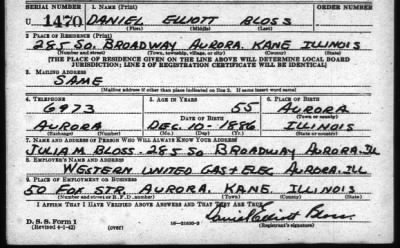 SERIAL NUMBER 1. NAME (Print) ORDER NUMBER
U 1470 DANIEL ELLIOTT BLOSS
(First) (Middle) (Last)
2. PLACE OF RESIDENCE (Print)
285 SO. BROADWAY AURORA. KANE ILLINOIS
(Number and street) (Town, township, village, or city) (County) (State)
[THE PLACE OF RESIDENCE GIVEN ON THE LINE ABOVE WILL DETERMINE LOCAL BOARD
JURISDICTION; LINE 2 OF REGISTRATION CERTIFICATE WILL BE IDENTICAL]
3. MAILING ADDRESS
SAME
[Mailing address if other than place indicated on line 2. If same insert word same]
4. TELEPHONE 5. AGE IN YEARS 6. PLACE OF BIRTH
6973 55 AURORA
DATE OF BIRTH (Town or county)
AURORA DEC. 10-1886 ILLINOIS
(Exchange) (Number) (Mo.) (Day) (Yr.) (State or country)
7. NAME AND ADDRESS OF PERSON WHO WILL ALWAYS KNOW YOUR ADDRESS
JULIA M. BLOSS. 285 SO BROADWAY AURORA. ILL
8. EMPLOYER'S NAME AND ADDRESS
WESTERN UNITED GAS + ELEC AURORA. ILL
9. PLACE OF EMPLOYMENT OR BUSINESS
50 FOX STR. AURORA. KANE. ILLINOIS
(Number and street or R. F. D. number) (Town) (County) (State)
I AFFIRM THAT I HAVE VERIFIED ABOVE ANSWERS AND THAT THEY ARE TRUE.
Daniel Elliott Bloss
D. S. S. Form 1
(Revised 4-1-42) (over) (Registrant's signature)